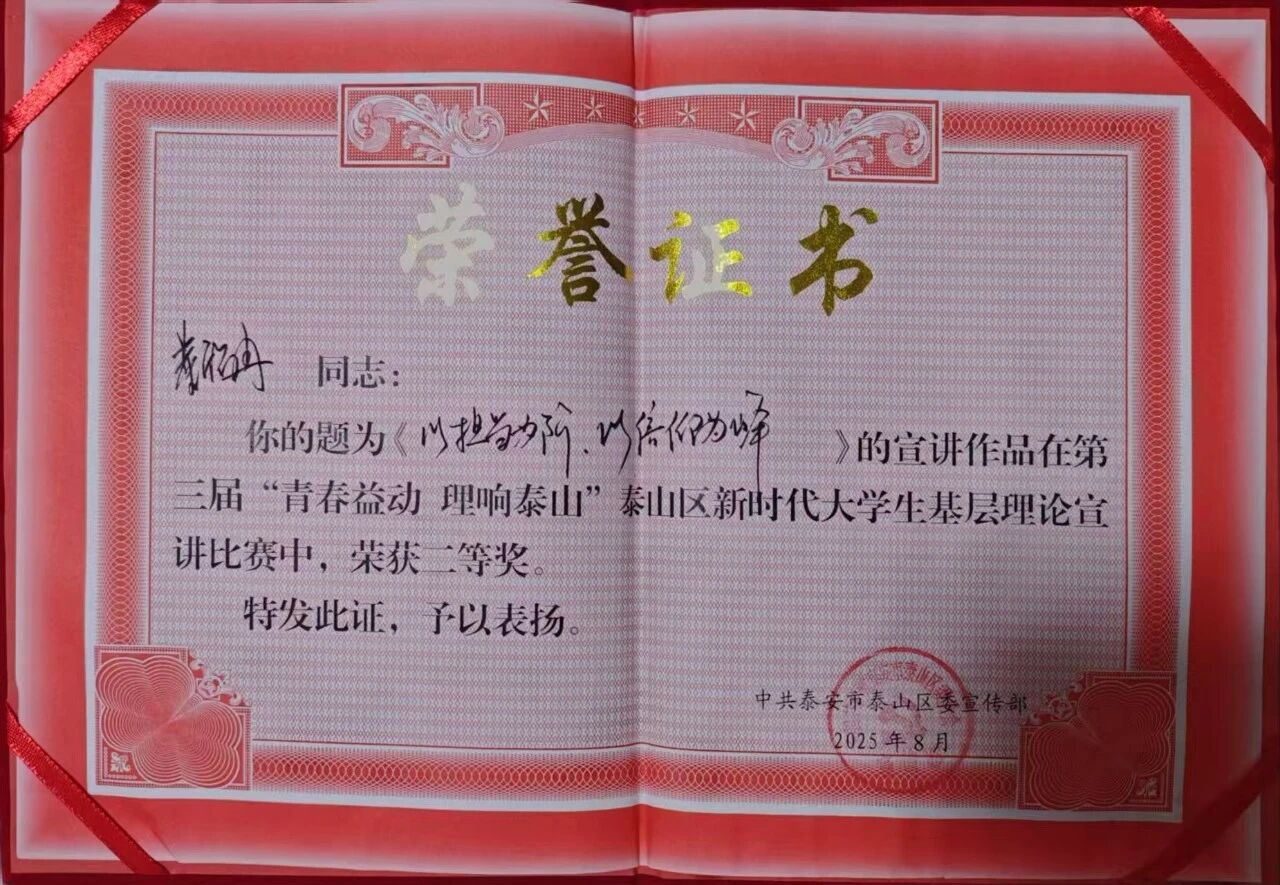 荣誉证书
同志：
你的题为《以担当为阶、以信仰为峰》的宣讲作品在第
三届“青春益动 理响泰山”泰山区新时代大学生基层理论宣
讲比赛中，荣获二等奖。
特发此证，予以表扬。
中共泰安市泰山区委宣传部
2025年8月